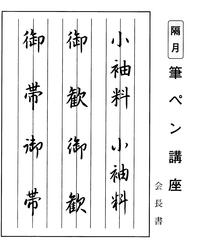 隔月
筆ペン講座
会長書
小袖料 小袖料
御歓 御歓
御帯 御帯